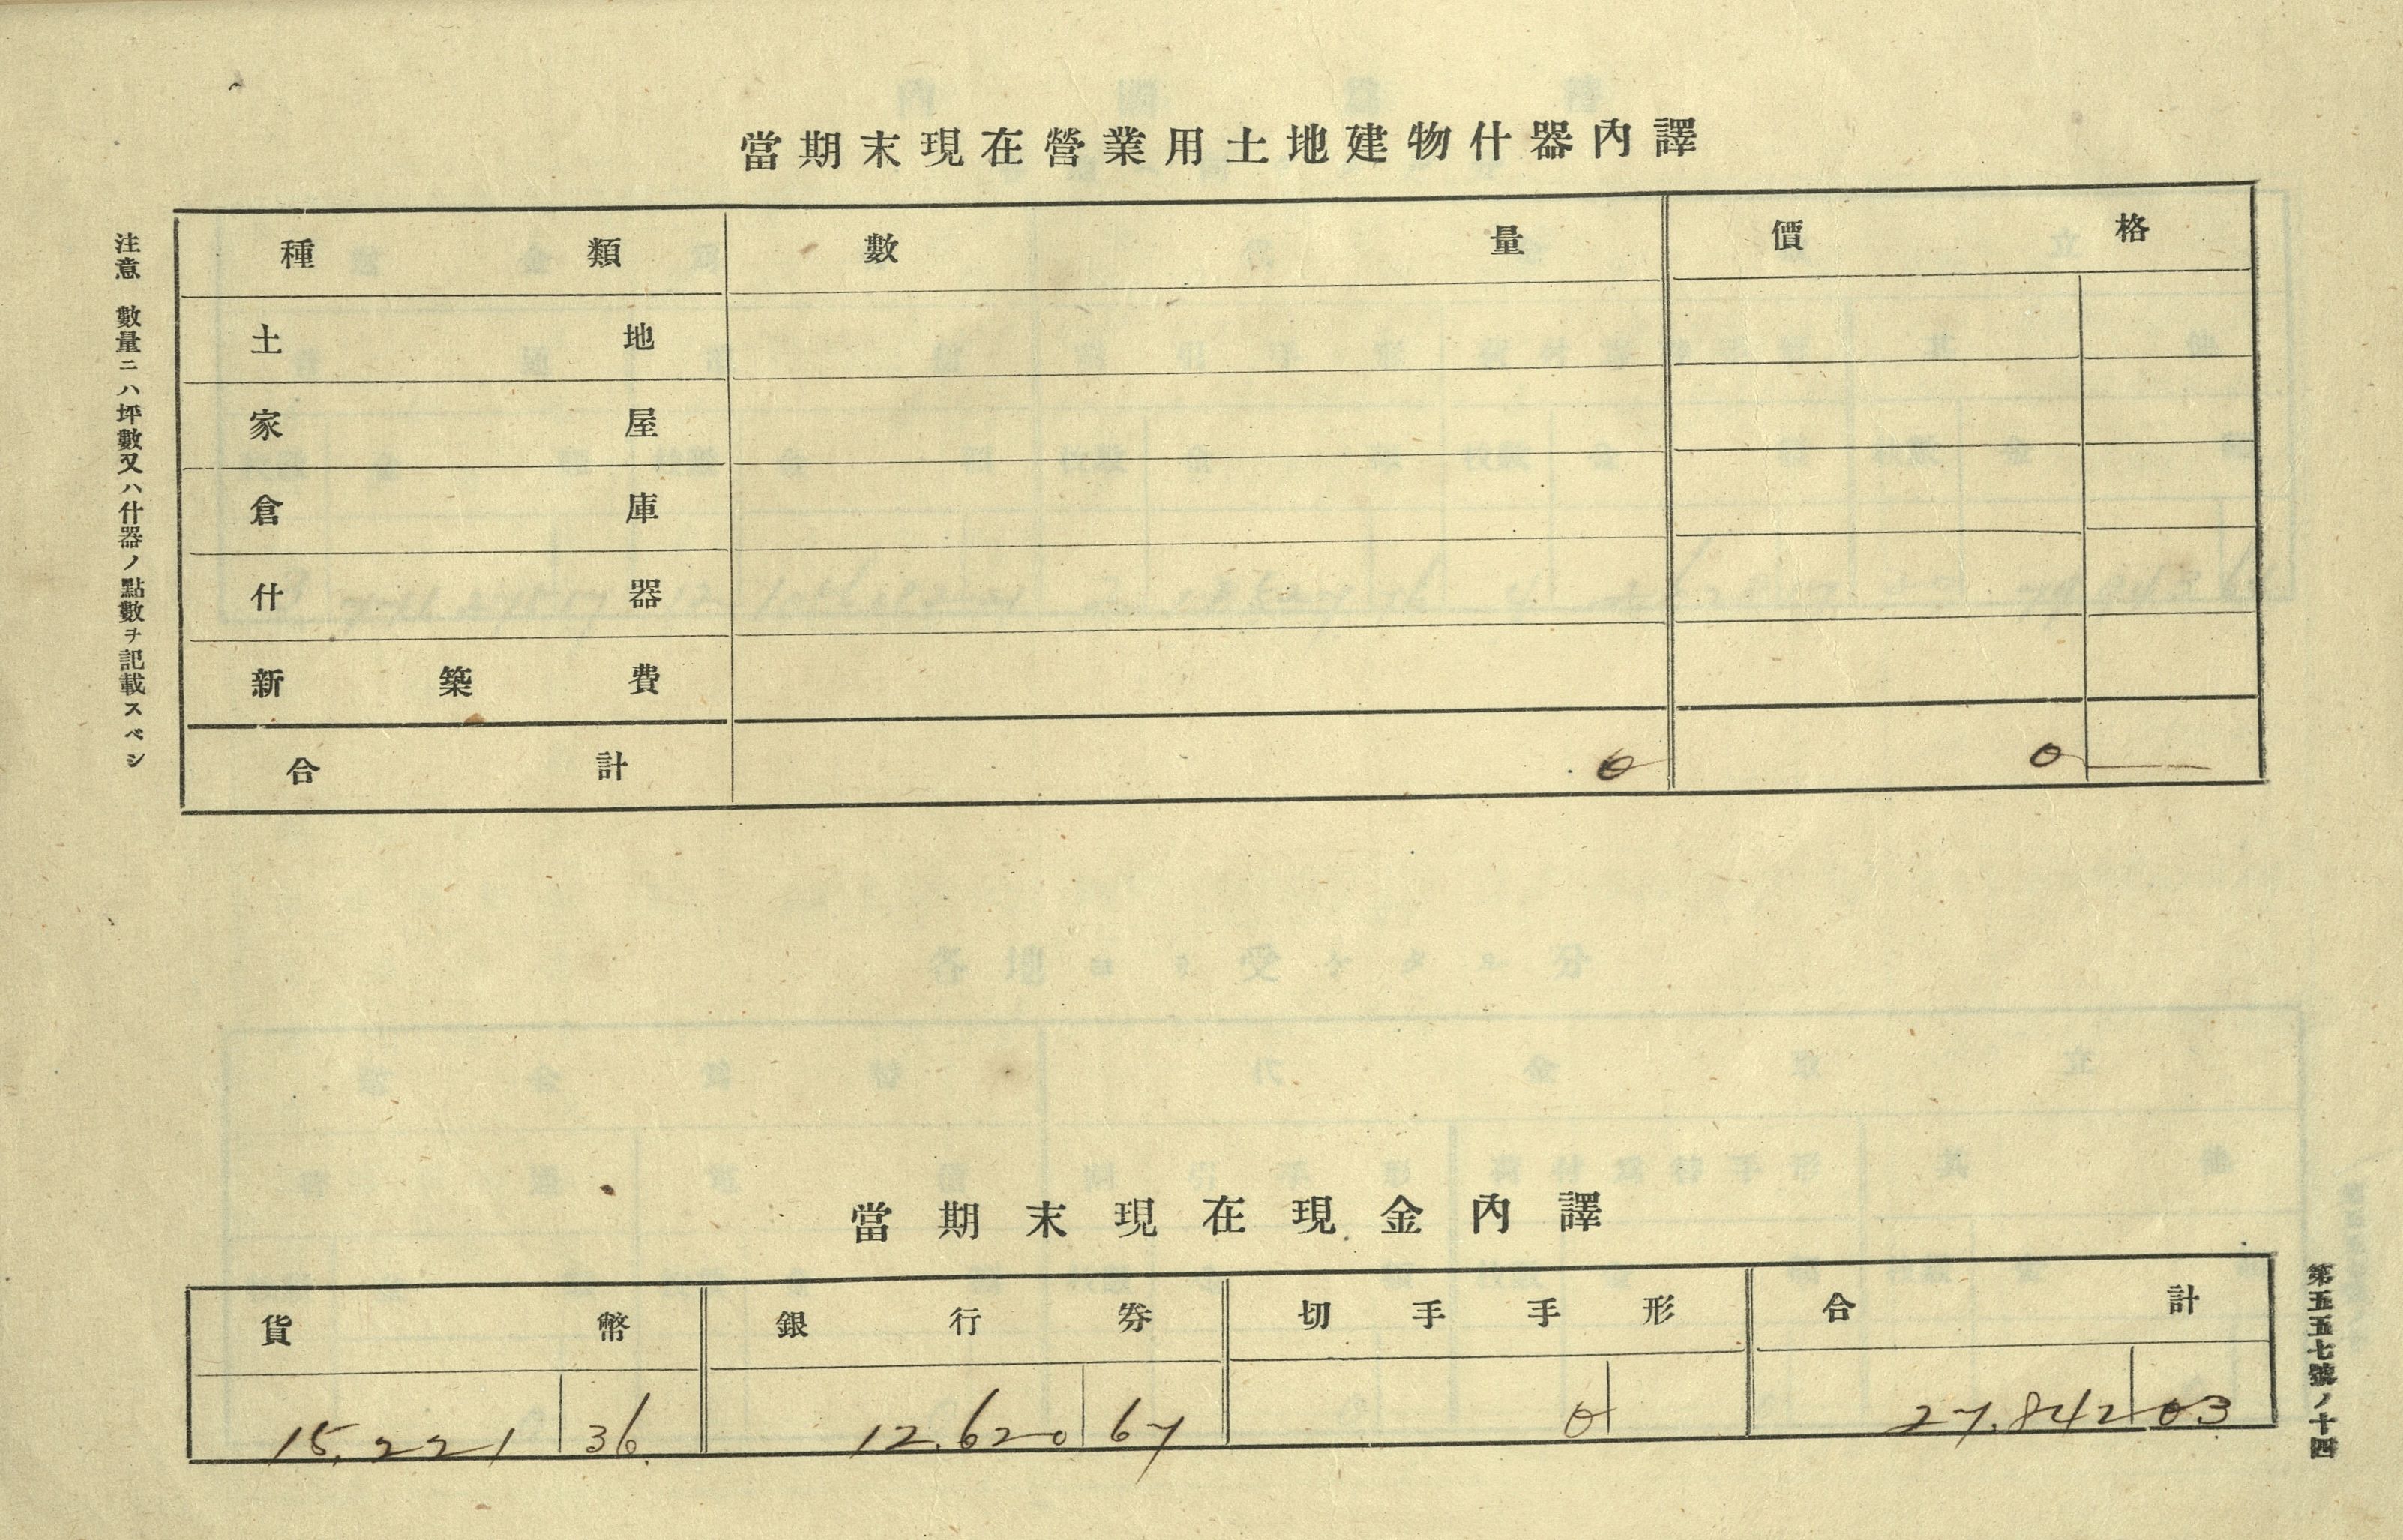 當期末現在營業用土地建物什器內譯
種類 數量 價格
土地
家屋
倉庫
什器
新築費
合計 0 0
注意 數量ニハ坪數又ハ什器ノ點數ヲ記載スベシ
當期末現在現金內譯
貨幣 銀行券 切手手形 合計
15,221 36 12,620 67 0 27,842 03
第五五七號ノ十四